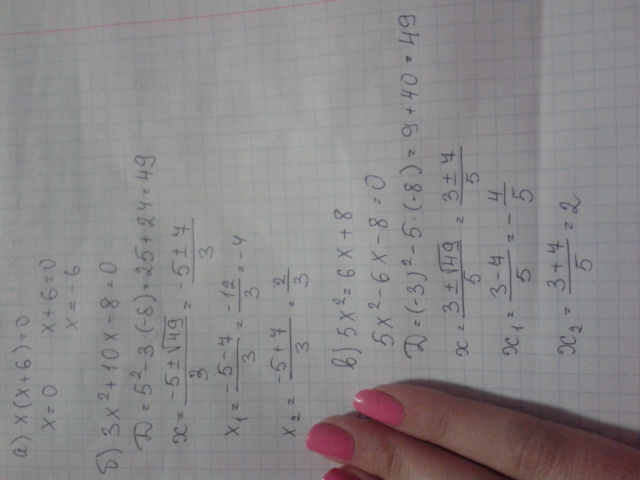 а) x(x+6)=0
x=0 x+6=0
x=-6
б) 3x²+10x-8=0
D=5²-3·(-8)=25+24=49
x=(-5±√49)/3=(-5±7)/3
x₁=(-5-7)/3=-12/3=-4
x₂=(-5+7)/3=2/3
в) 5x²=6x+8
5x²-6x-8=0
D=(-3)²-5·(-8)=9+40=49
x=(3±√49)/5=(3±7)/5
x₁=(3-7)/5=-4/5
x₂=(3+7)/5=2